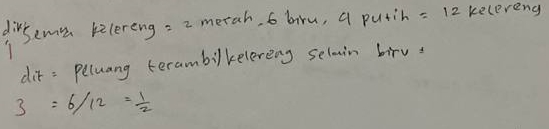 dik = semua kelereng = 2 merah, 6 biru, 4 putih = 12 kelereng
dit = peluang terambil kelereng selain biru =
3 = 6/12 = 1/2